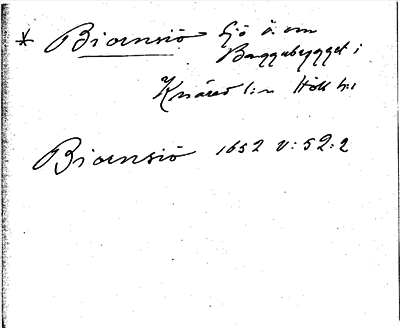 * Biærnsiö Sjö ö. om
Baggabygget i
Knäred s:n Hök h:d
Biærnsiö 1652 V:52:2